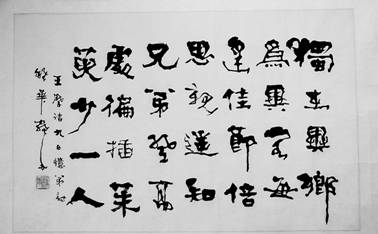 獨在異鄉
為異客每
逢佳節倍
思親遙知
兄弟登高
處徧插茱
萸少一人
王摩詰九日憶弟